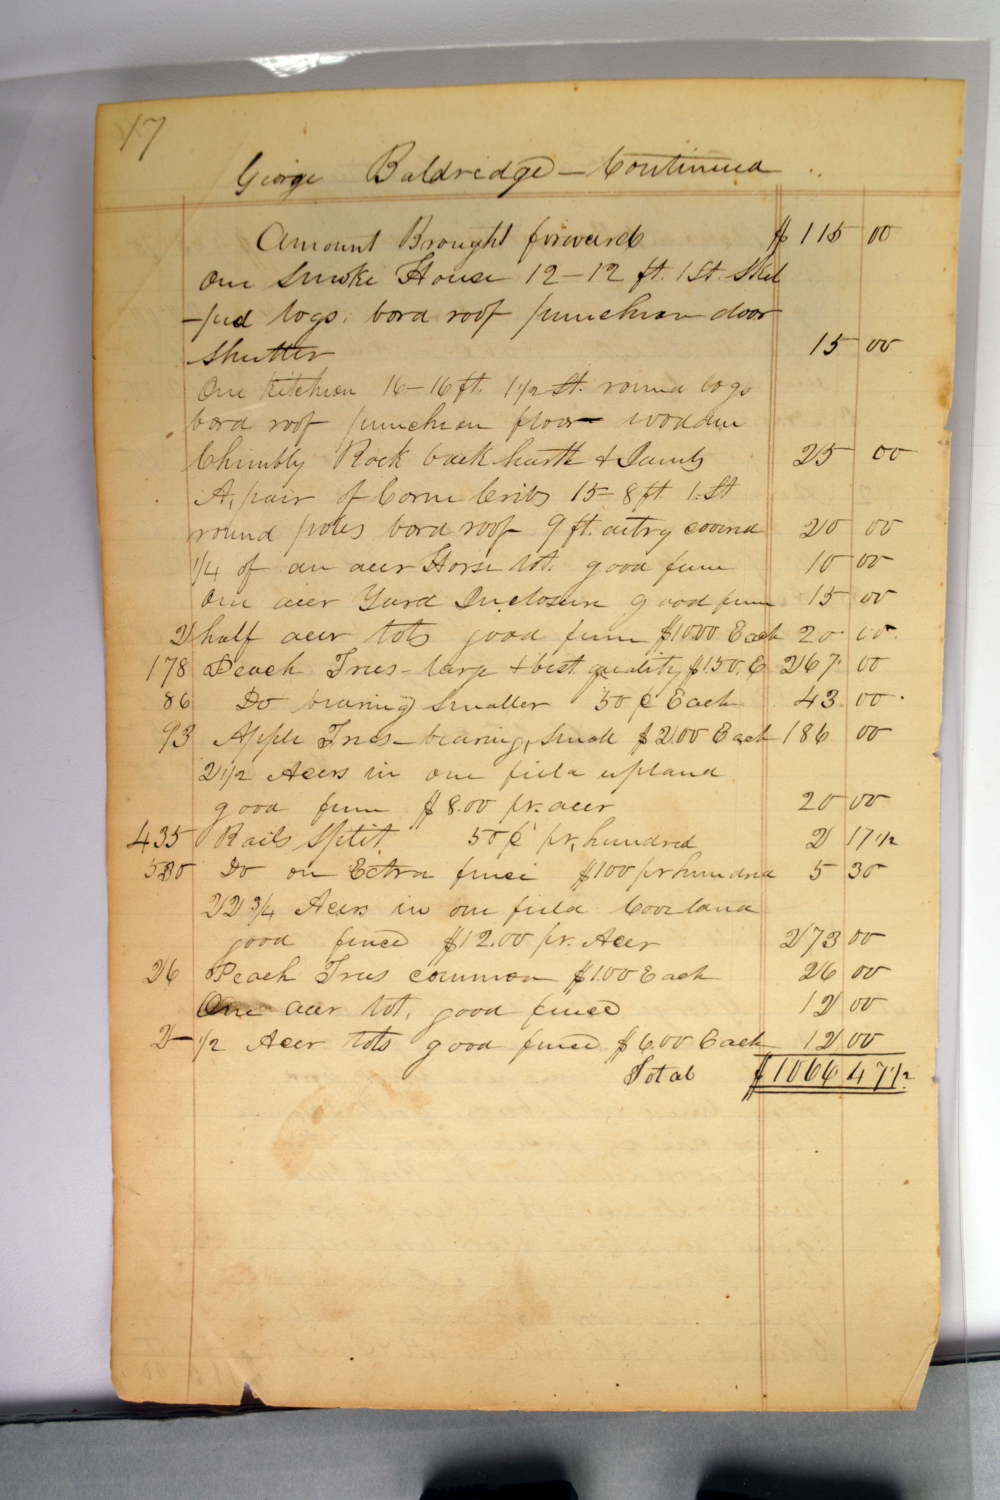 17
George Baldredge – Continued
Amount Brought forward $ 115 00
One Smoke House 12–12 ft. 1 St. Skel
–ped logs. bord roof puncheon door
Shutter 15 00
One Kitchen 16–16 ft. 1 1/2 St. round logs
bord roof puncheon floor wodden
Chimbly Rock back hearth & Jambs 25 00
A, pair of Corn Cribs 15–8 ft. 1 St
round poles bord roof 9 ft. entry coverd 20 00
1/4 of an acer Horse lot. good fence 10 00
One acer Yard Inclosure good fence 15 00
2 half acer lots good fence $10.00 Each 20 00
178 Peach Trees – large & best quality $1.50. E 267 00
86 Do bearing smaller 50 ¢ Each 43 00
93 Apple Trees – bearing, small $2.00 Each 186 00
2 1/2 Acers in one field upland
good fence $8.00 pr. acer 20 00
435 Rails Split 50 ¢ pr, hundred 2 17 1/2
530 Do on Extra fence $1.00 pr hundred 5 30
22 3/4 Acers in one field
good fence $12.00 pr. Acer 273 00
26 Peach Trees common $1.00 Each 26 00
One acer lot. good fence 12 00
2 – 1/2 Acer lots good fence $6.00 Each 12 00
Total $1066 47 1/2